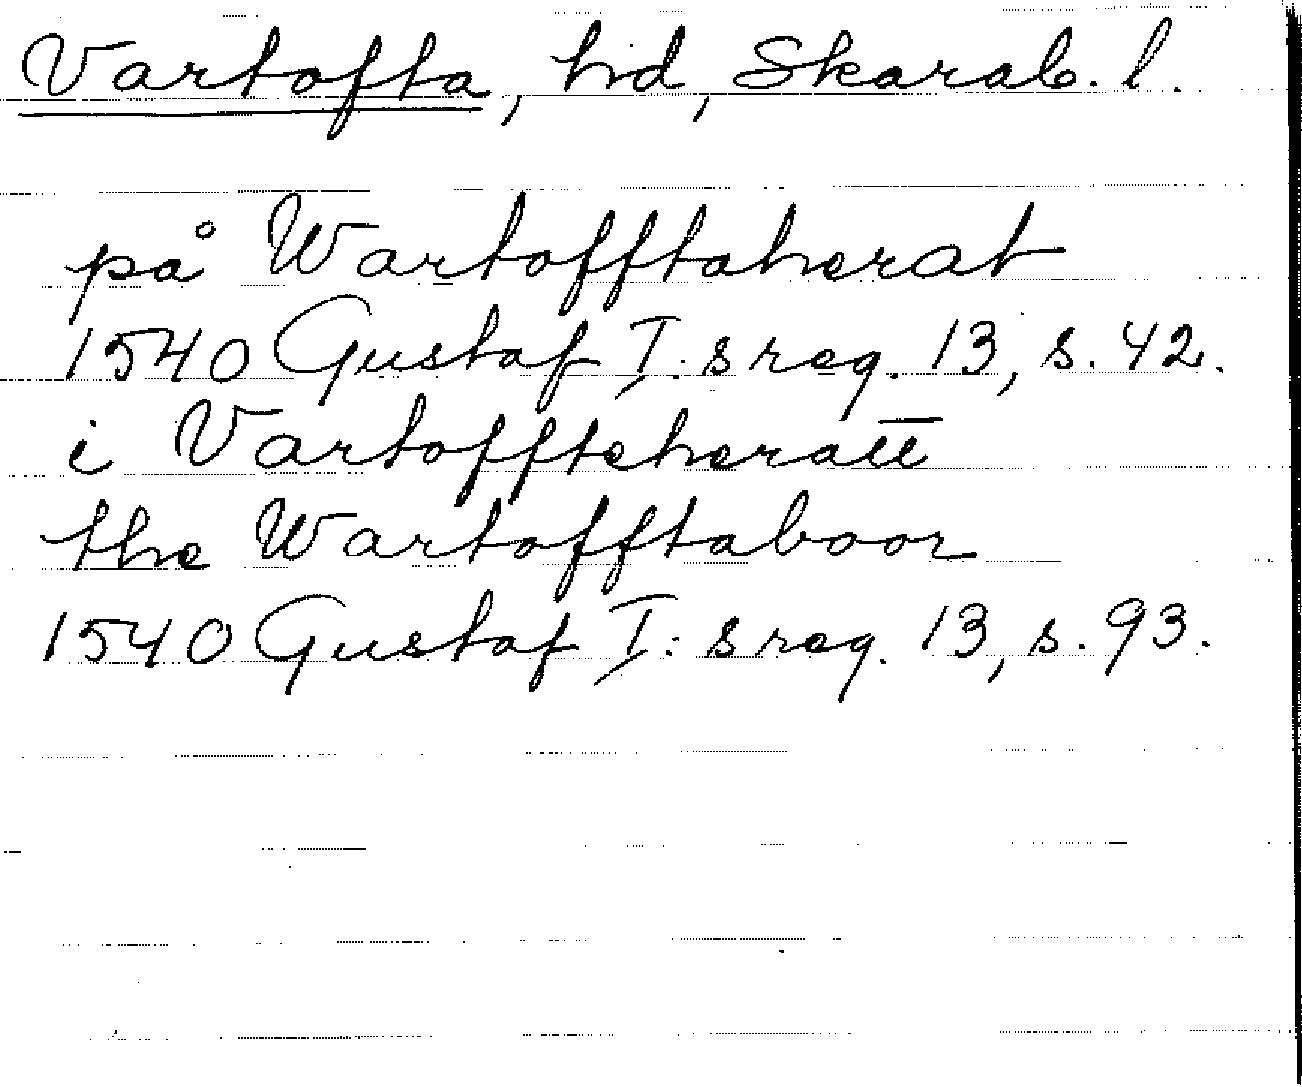 Vartofta, hd, Skarab. l.
på Wartofftaherat
1540 Gustaf I:s reg. 13, s. 42.
i Vartoffteheratt
the Wartofftaboor
1540 Gustaf I:s reg. 13, s. 93.